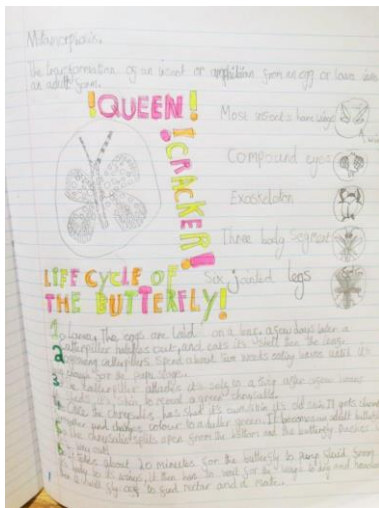 Metamorphosis.
The transformation of an insect or amphibian from an egg or larva into
an adult form.
!QUEEN!
!CRACKER!
Most insects have wings
Compound eyes
Exoskeleton
Three body segment
Six jointed legs
LIFE CYCLE OF
THE BUTTERFLY!
1 The eggs are on a leaf. A few days later a
2 caterpillar out, and eats its shell then the
caterpillars spend about two weeks eating leaves until it's
for the pupa stage.
3 The caterpillar its self to a twig after a few
its skin to reveal a green chrysalid.
4 the chrysalis has its old skin. It gets
and changes colour to a duller green.
5 the chrysalis splits open from the bottom and the butterfly
out.
6 It takes about 20 minutes for the butterfly to pump fluid from
its body to its wings, it then has to wait for the wings to dry and
fly off to find nectar and a mate.